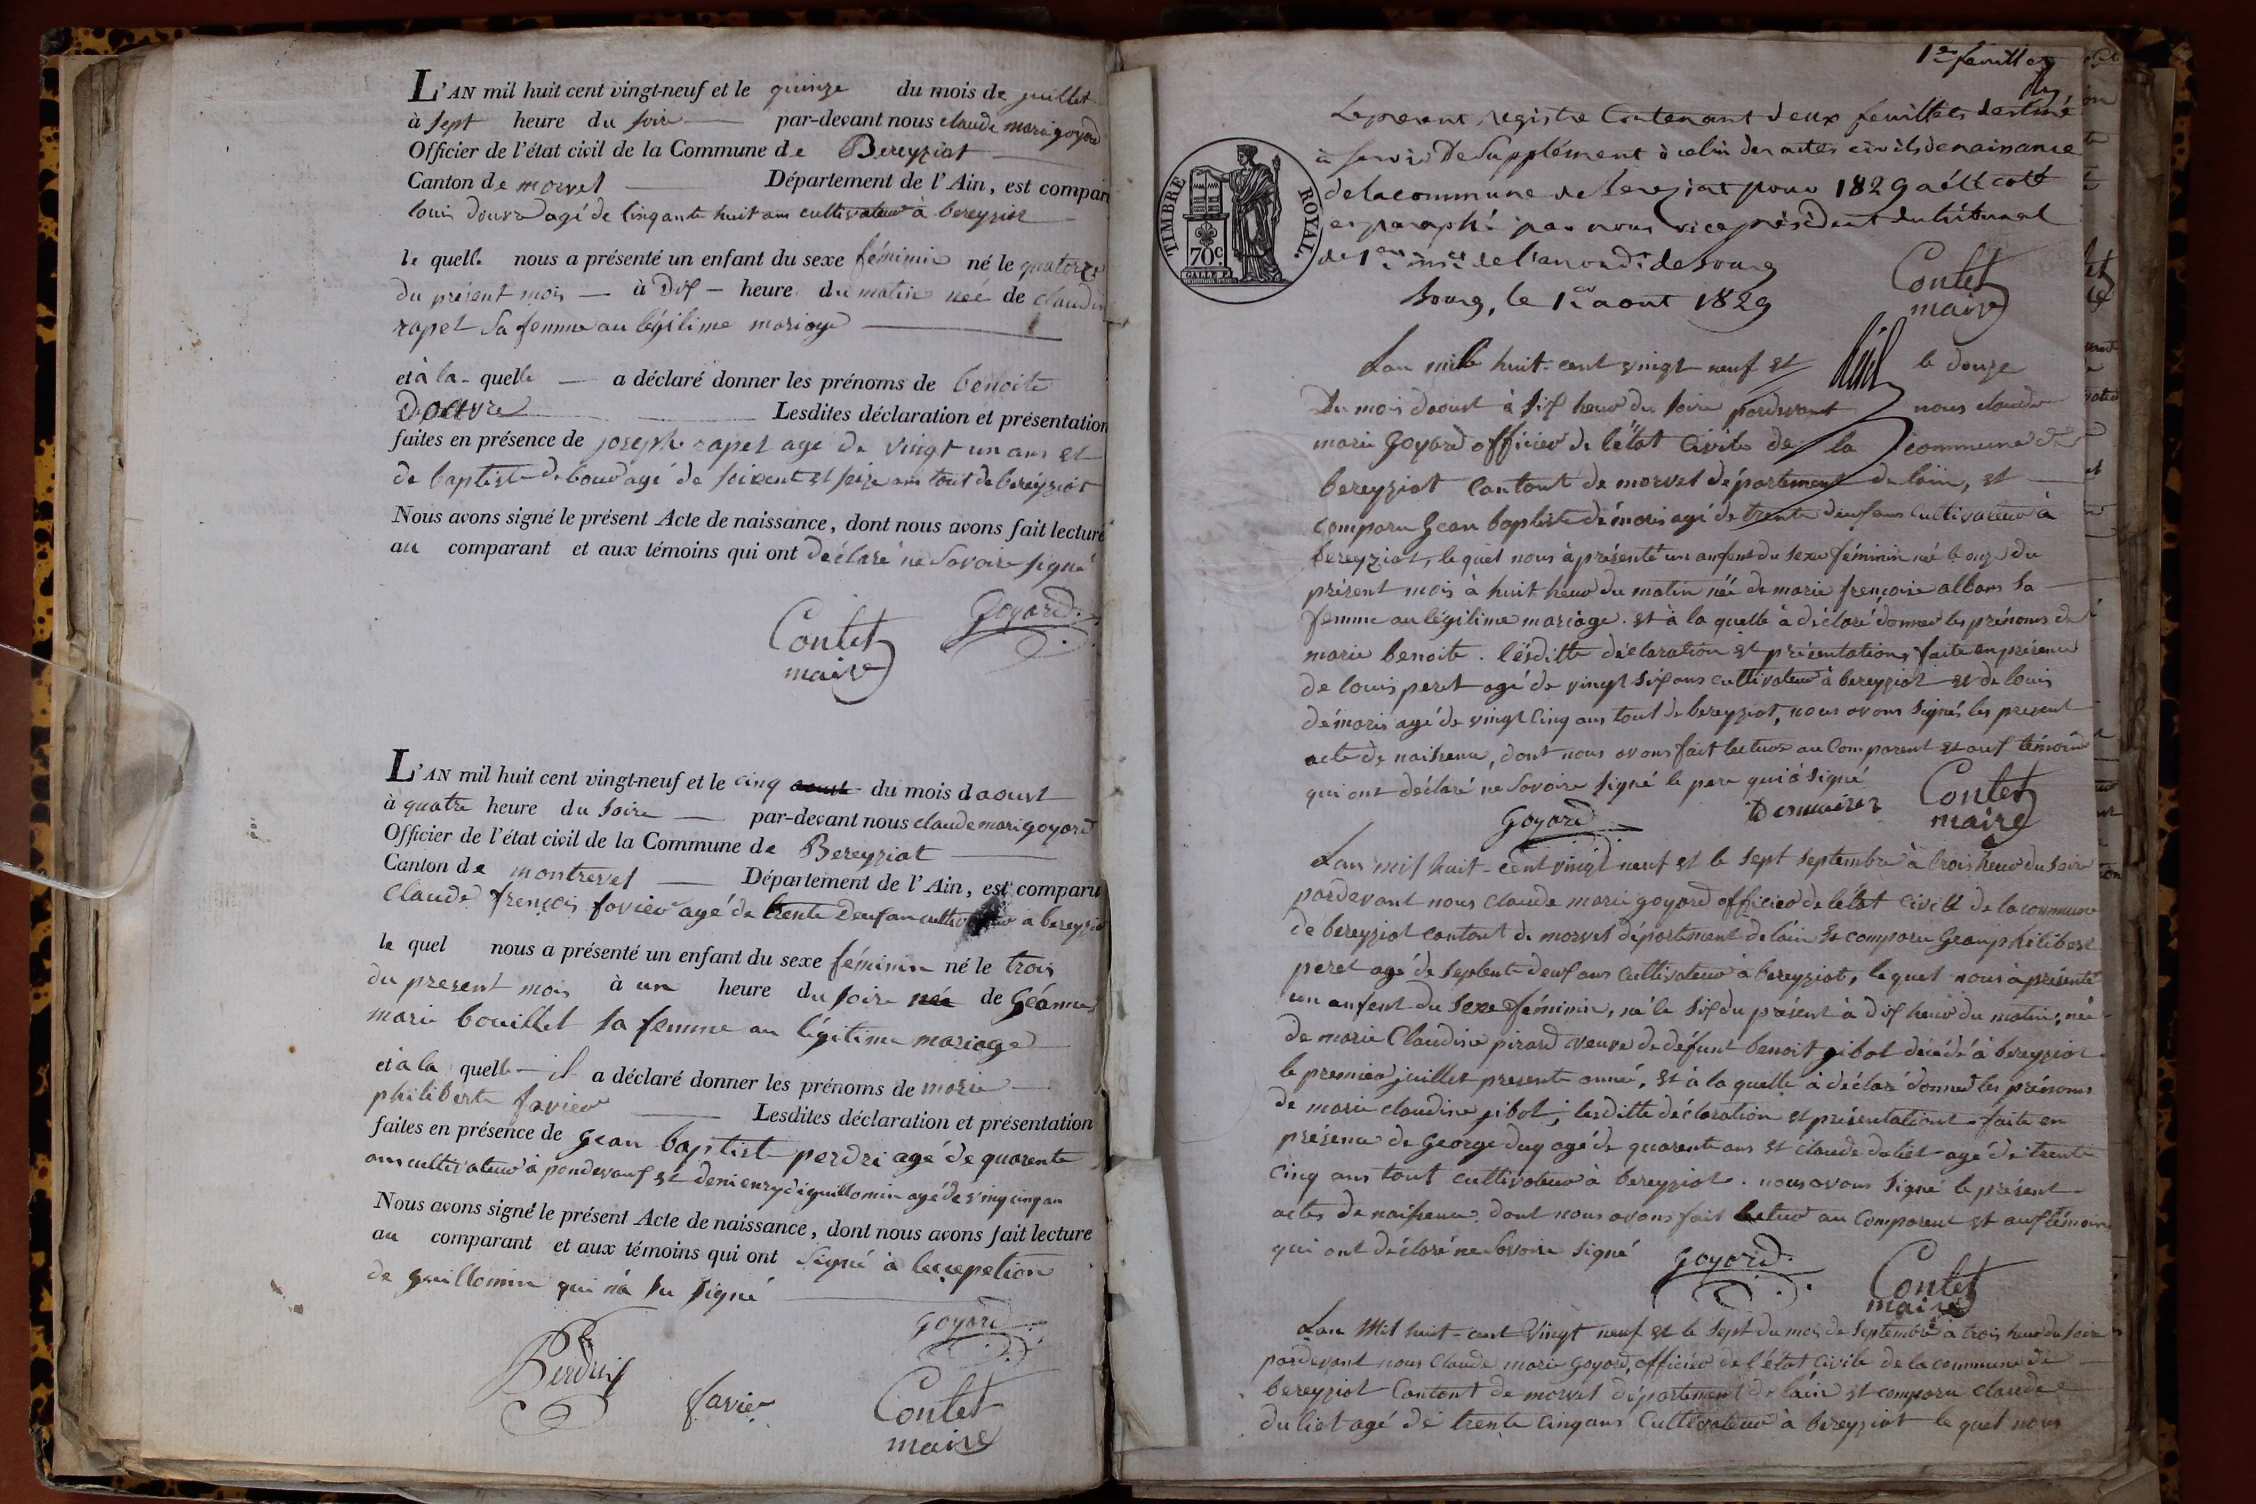 L'AN mil huit cent vingt-neuf et le quinze du mois de juillet
à sept heure du soire par-devant nous claude marie goyard
Officier de l'état civil de la Commune de Bereyziat
Canton de morvel Département de l'Ain, est comparu
louis douvre agé de cinqante huit ans cultivateur à bereyziat
le quelle nous a présenté un enfant du sexe féminin né le quatorze
du présent mois à dix heure du matin neé de claudine
rapet sa femme au légitime mariage
et à la quelle a déclaré donner les prénoms de benoite
Douvre Lesdites déclaration et présentation
faites en présence de joseph rapet age de vingt un ans et
de baptiste debourd agé de soixent et seize ans tout de bereyziat
Nous avons signé le présent Acte de naissance, dont nous avons fait lecture
au comparant et aux témoins qui ont déclaré ne savoire signé
Goyard
Contet
maire
L'AN mil huit cent vingt-neuf et le cinq aoust du mois daoust
à quatre heure du soire par-devant nous claude mari goyard
Officier de l'état civil de la Commune de Bereyziat
Canton de montrevel Département de l'Ain, est comparu
Claude françois favier agé de trente deux an cultivateur a bereyziat
le quel nous a présenté un enfant du sexe féminin né le trois
du present mois à un heure du soire née de Géanne
marie bouillet sa femme au légitime mariage
et à la quelle il a déclaré donner les prénoms de marie
philiberte favier Lesdites déclaration et présentation
faites en présence de gean baptiste perdri agé de quarente
ans cultivateur à pondevaux et guillomin agé de vingt cinq an
Nous avons signé le présent Acte de naissance, dont nous avons fait lecture
au comparant et aux témoins qui ont signé à lexcepetion
de guillomin qui n'a su signé
Goyard
Perdrix favier Contet
maire
1er feuillet
Le present registre Contenant deux feuillets destiné
à servir De Supplément à celui des actes civils de naissance
de la commune de bereyziat pour 1829 a été coté
et paraphé par nous vice président du tribunal
de 1ere inst. de l'arrond.t de bourg
Bourg, le 1er aout 1829
TIMBRE ROYAL.
70 c.
Contet
maire
Lan mille huit-cent vingt neuf et le douze
Du mois daoust à six heur du soire pardevant nous claude
marie Goyard officier de létat civile de la commune de
bereyziat Cantont de morvel département de lain, et
comparu Gean baptiste démoris agé de trente deux ans Cultivateur à
bereyziat, le quel nous à présenté un anfent du sexe féminin né le onze du
présent mois à huit heur du matin née de marie françoise albans sa
femme au légitime mariage. et à la quelle à déclaré donner les prénoms de
marie benoite. lesditte déclaration et présentations, faite en présence
de louis peret agé de vingt six ans cultivateur à bereyziat et de louis
démoris agé de vingt Cinq ans tout de bereyziat, nous avons signés les present
acte de naissence, dont nous avons fait lecture au Comparent et aux témoins
qui ont déclaré ne Savoire signé le pere qui à signé
Goyard Contet
maire
Lan mil huit-cent vingt neuf et le sept septembre à trois heur du soire
pardevant nous claude marie goyard officier de létat Civile de la commune
de bereyziat cantont de morvel département de lain et comparu Gean philibert
peret agé de septente deux ans Cultivateur à bereyziat, le quel nous à présenté
un anfent du sexe féminin, né le six du présent à dix heur du matin; née
de marie Claudine pirard veuve de défunt benoit gibot décédé à bereyziat
le premier juillet presente année, et à la quelle à déclaré donner les prénoms
de marie claudine gibot; lesditte déclaration et présentationt faite en
présence de George duq agé de quarente ans et claude duliet agé de trente
cinq ans tout cultivateur à bereyziat. nous avons signé le présent
actes de naissence dont nous avons fait lectur au Comparent et aux témoins
qui ont déclaré ne Savoire signé Goyard
Contet
maire
Lan mil huit-cent Vingt neuf et le sept du mois de Septembre à trois heur du soire
pardevant nous Claude marie Goyard, officier de l'état Civile de la commune de
bereyziat Cantont de morvel département de lain et comparu claude
duliet agé de trente cinq ans Cultivateur à bereyziat le quel nous